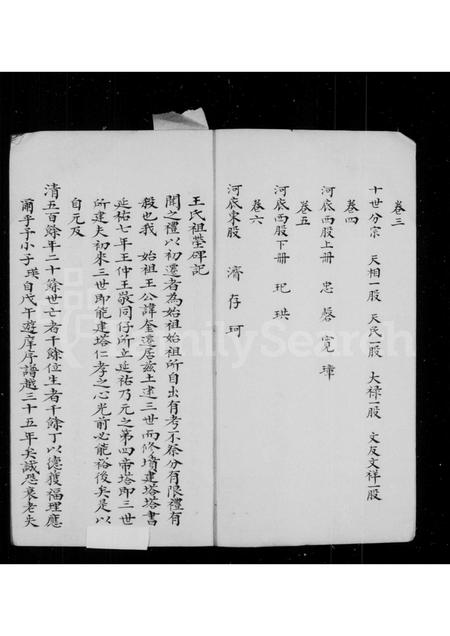 卷三
十世分宗 天相一股 天民一股 大祿一股 文友文祥一股
卷四
河底西股上冊 忠 磬 寬 璋
卷五
河底西股下冊 玘 珙
卷六
河底東股 濟 存 珂
王氏祖塋碑記
聞之禮以初遷者為始祖始祖所自出有考不祭分有限禮有
殺也我 始祖王公諱奎遷居茲土逮三世而修墳建塔塔書
延祐七年王仲王敬同仔所立延祐乃元之第四帝塔即三世
所建夫初來三世即能建塔仁孝之心光前必能裕後矣是以
自元及
清五百餘年二十餘世亡者千餘位生者千餘丁以德獲福理應
爾乎予小子 瑛自戊午遊庠序譜越三十五年矣誠恐衰老失
FamilySearch